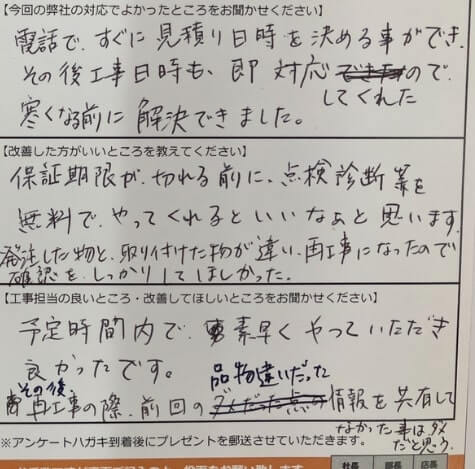 【今回の弊社の対応でよかったところをお聞かせください】
電話で、すぐに見積り日時を決める事ができ、
その後工事日時も、即対応してくれたので、
寒くなる前に解決できました。
【改善した方がいいところを教えてください】
保証期限が、切れる前に、点検診断等を
無料で、やってくれるといいなぁと思います。
発注した物と、取り付けた物が違い、再工事になったので
確認を、しっかりしてほしかった。
【工事担当の良いところ・改善してほしいところをお聞かせください】
予定時間内で、素早くやっていただき
良かったです。
その後再工事の際、前回の品物違いだった情報を共有して
なかった事はダメだと思う。
※アンケートハガキ到着後にプレゼントを郵送させていただきます。
社長 部長 店長